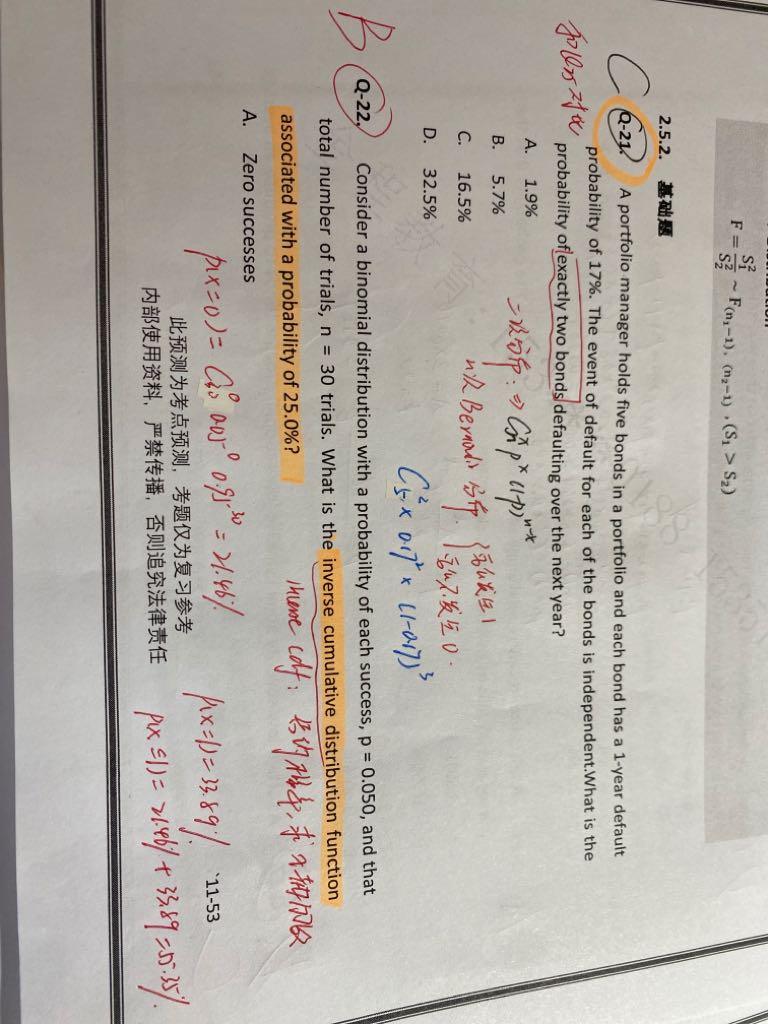 F = S₁²/S₂² ~ F(n₁−1), (n₂−1) , (S₁ > S₂)
2.5.2. 基础题
C Q-21. A portfolio manager holds five bonds in a portfolio and each bond has a 1-year default
probability of 17%. The event of default for each of the bonds is independent.What is the
probability of exactly two bonds defaulting over the next year?
A. 1.9%
B. 5.7%
C. 16.5%
D. 32.5%
n次 Bernoulli 分布.
C₅² × 0.17² × (1-0.17)³
B Q-22. Consider a binomial distribution with a probability of each success, p = 0.050, and that
total number of trials, n = 30 trials. What is the inverse cumulative distribution function
associated with a probability of 25.0%?
inverse cdf:
A. Zero successes
p(x=0) = C₃₀⁰ 0.05⁰ 0.95³⁰ = 21.46%
p(x=1)=33.89%
p(x≤1)= 21.46% + 33.89 = 55.35%.
11-53
此预测为考点预测，考题仅为复习参考
内部使用资料，严禁传播，否则追究法律责任